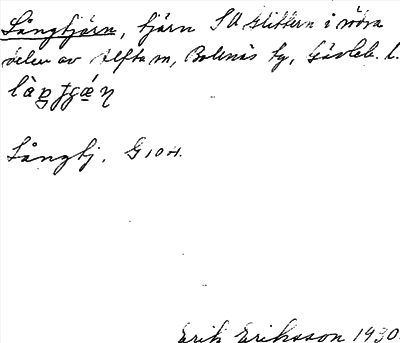 Långtjärn, tjärn SV Glittern i södra
delen av Alfta sn, Bollnäs tg, Gävleb. l.
Långtj. G 10 H.
Erik Eriksson 1930.